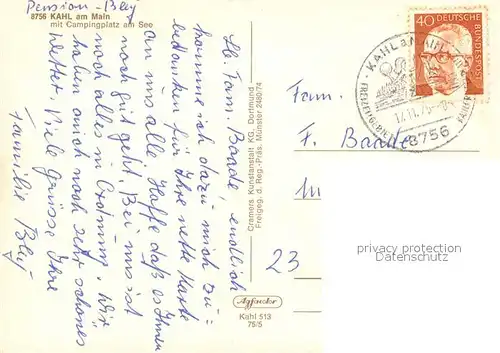 Pension - Bley
8756 KAHL am Main
mit Campingplatz am See
Lb. Fam. Baade, endlich
komme ich dazu mich zu
bedanken für Ihre nette Karte
an uns alle. Hoffe daß es Ihnen
noch gut geht. Bei uns ist
noch alles in Ordnung. Wir
haben auch noch sehr schönes
Wetter. Viele Grüsse Ihre
Familie Bley
Cramers Kunstanstalt KG, Dortmund
Freigeg. d. Reg.-Präs. Münster 2480/74
Kahl 513
75/5
40 DEUTSCHE
BUNDESPOST
KAHL a. MAIN
FREIZEITGEBIET
17.11.75
8756
Fam.
F. Baade
23
privacy protection
Datenschutz